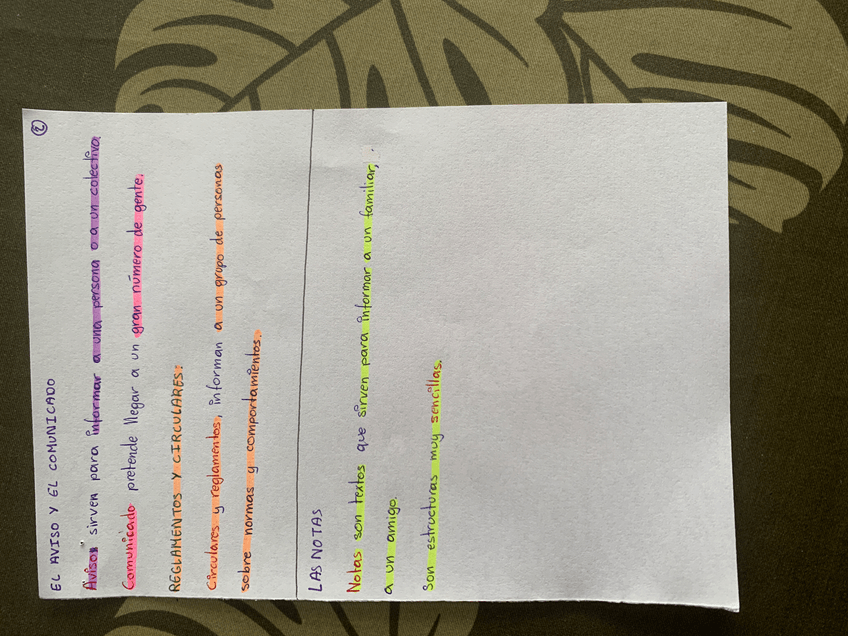 2
EL AVISO Y EL COMUNICADO
Avisos sirven para informar a una persona o a un colectivo.
Comunicado pretende llegar a un gran número de gente.
REGLAMENTOS Y CIRCULARES:
Circulares y reglamentos, informan a un grupo de personas
sobre normas y comportamientos.
LAS NOTAS
Notas son textos que sirven para informar a un familiar,
a un amigo.
Son estructuras muy sencillas.